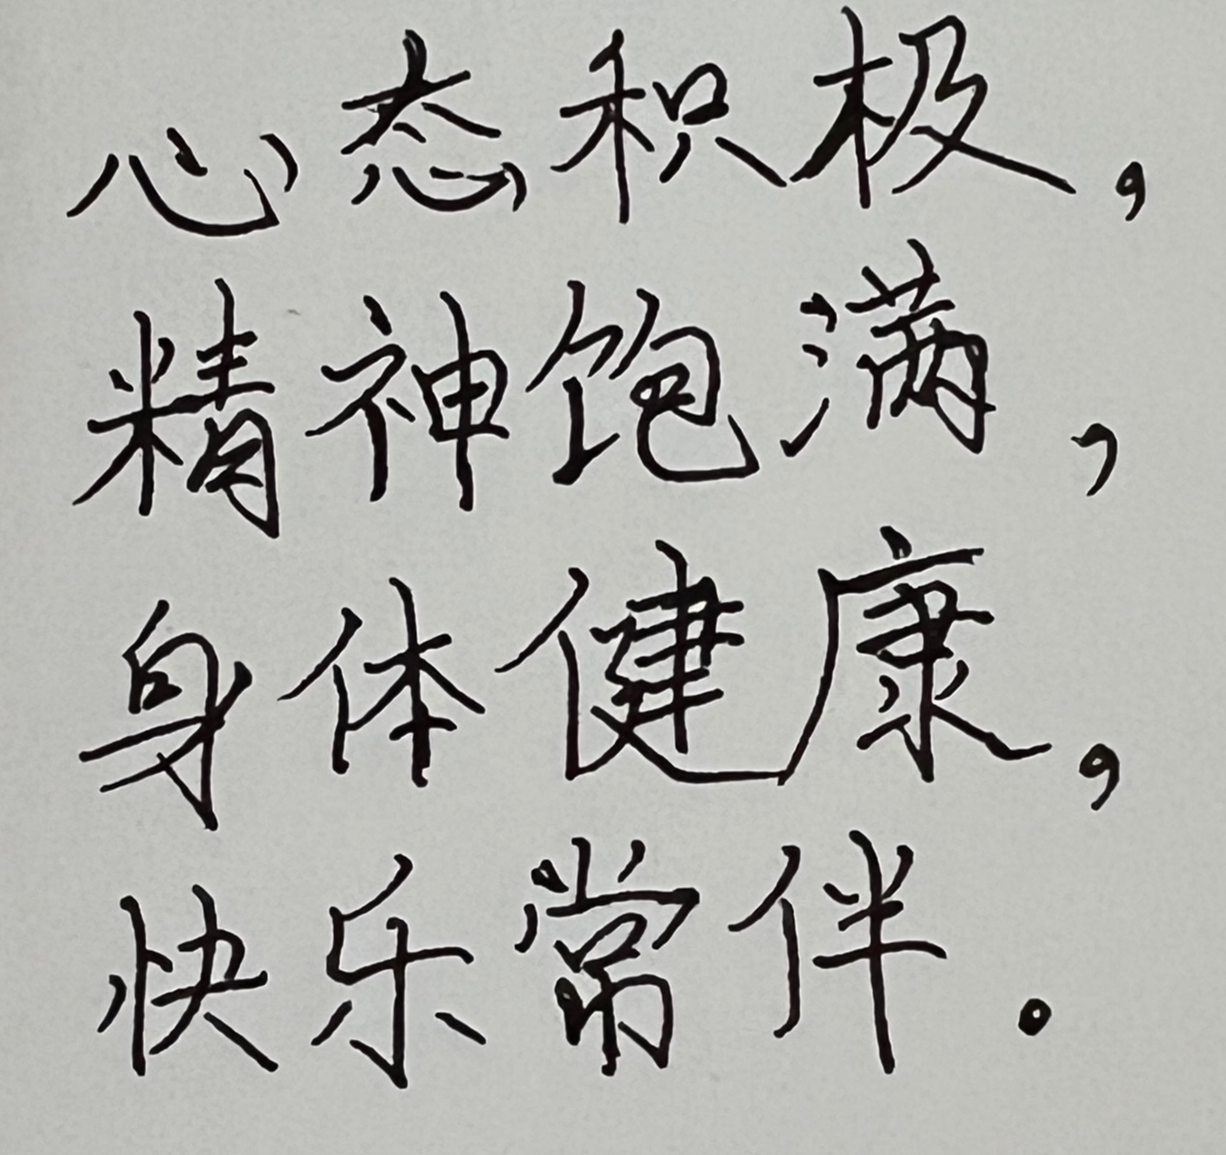 心态积极，
精神饱满，
身体健康，
快乐常伴。